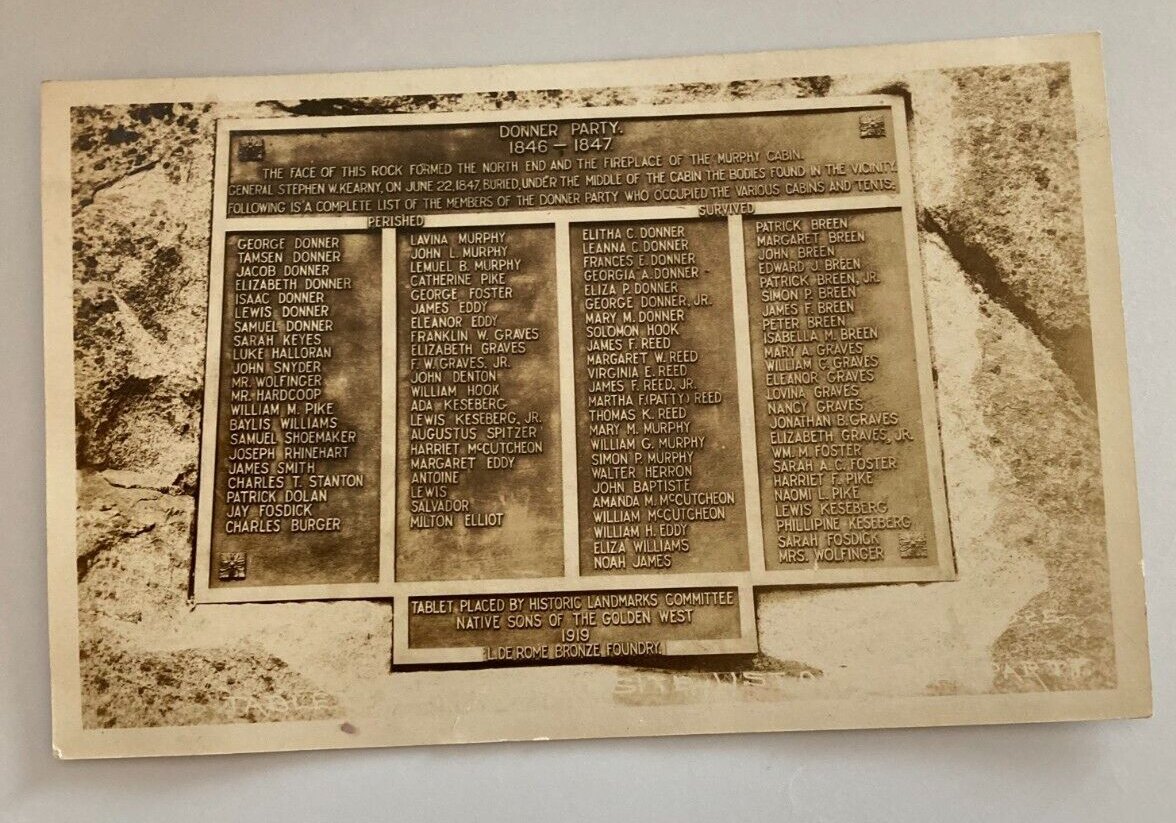 DONNER PARTY.
1846 — 1847
THE FACE OF THIS ROCK FORMED THE NORTH END AND THE FIREPLACE OF THE MURPHY CABIN.
GENERAL STEPHEN W. KEARNY, ON JUNE 22, 1847, BURIED, UNDER THE MIDDLE OF THE CABIN THE BODIES FOUND IN THE VICINITY.
FOLLOWING IS A COMPLETE LIST OF THE MEMBERS OF THE DONNER PARTY WHO OCCUPIED THE VARIOUS CABINS AND TENTS:
PERISHED
GEORGE DONNER
TAMSEN DONNER
JACOB DONNER
ELIZABETH DONNER
ISAAC DONNER
LEWIS DONNER
SAMUEL DONNER
SARAH KEYES
LUKE HALLORAN
JOHN SNYDER
MR. WOLFINGER
MR. HARDCOOP
WILLIAM M. PIKE
BAYLIS WILLIAMS
SAMUEL SHOEMAKER
JOSEPH RHINEHART
JAMES SMITH
CHARLES T. STANTON
PATRICK DOLAN
JAY FOSDICK
CHARLES BURGER
LAVINA MURPHY
JOHN L. MURPHY
LEMUEL B. MURPHY
CATHERINE PIKE
GEORGE FOSTER
JAMES EDDY
ELEANOR EDDY
FRANKLIN W. GRAVES
ELIZABETH GRAVES
F. W. GRAVES, JR.
JOHN DENTON
WILLIAM HOOK
ADA KESEBERG
LEWIS KESEBERG, JR.
AUGUSTUS SPITZER
HARRIET McCUTCHEON
MARGARET EDDY
ANTOINE
LEWIS
SALVADOR
MILTON ELLIOT
SURVIVED
ELITHA C. DONNER
LEANNA C. DONNER
FRANCES E. DONNER
GEORGIA A. DONNER
ELIZA P. DONNER
GEORGE DONNER, JR.
MARY M. DONNER
SOLOMON HOOK
JAMES F. REED
MARGARET W. REED
VIRGINIA E. REED
JAMES F. REED, JR.
MARTHA F. (PATTY) REED
THOMAS K. REED
MARY M. MURPHY
WILLIAM G. MURPHY
SIMON P. MURPHY
WALTER HERRON
JOHN BAPTISTE
AMANDA M. McCUTCHEON
WILLIAM McCUTCHEON
WILLIAM H. EDDY
ELIZA WILLIAMS
NOAH JAMES
PATRICK BREEN
MARGARET BREEN
JOHN BREEN
EDWARD J. BREEN
PATRICK BREEN, JR.
SIMON P. BREEN
JAMES F. BREEN
PETER BREEN
ISABELLA M. BREEN
MARY A. GRAVES
WILLIAM C. GRAVES
ELEANOR GRAVES
LOVINA GRAVES
NANCY GRAVES
JONATHAN B. GRAVES
ELIZABETH GRAVES, JR.
WM. M. FOSTER
SARAH A. C. FOSTER
HARRIET F. PIKE
NAOMI L. PIKE
LEWIS KESEBERG
PHILLIPINE KESEBERG
SARAH FOSDICK
MRS. WOLFINGER
TABLET PLACED BY HISTORIC LANDMARKS COMMITTEE
NATIVE SONS OF THE GOLDEN WEST
1919
L. DE ROME BRONZE FOUNDRY.